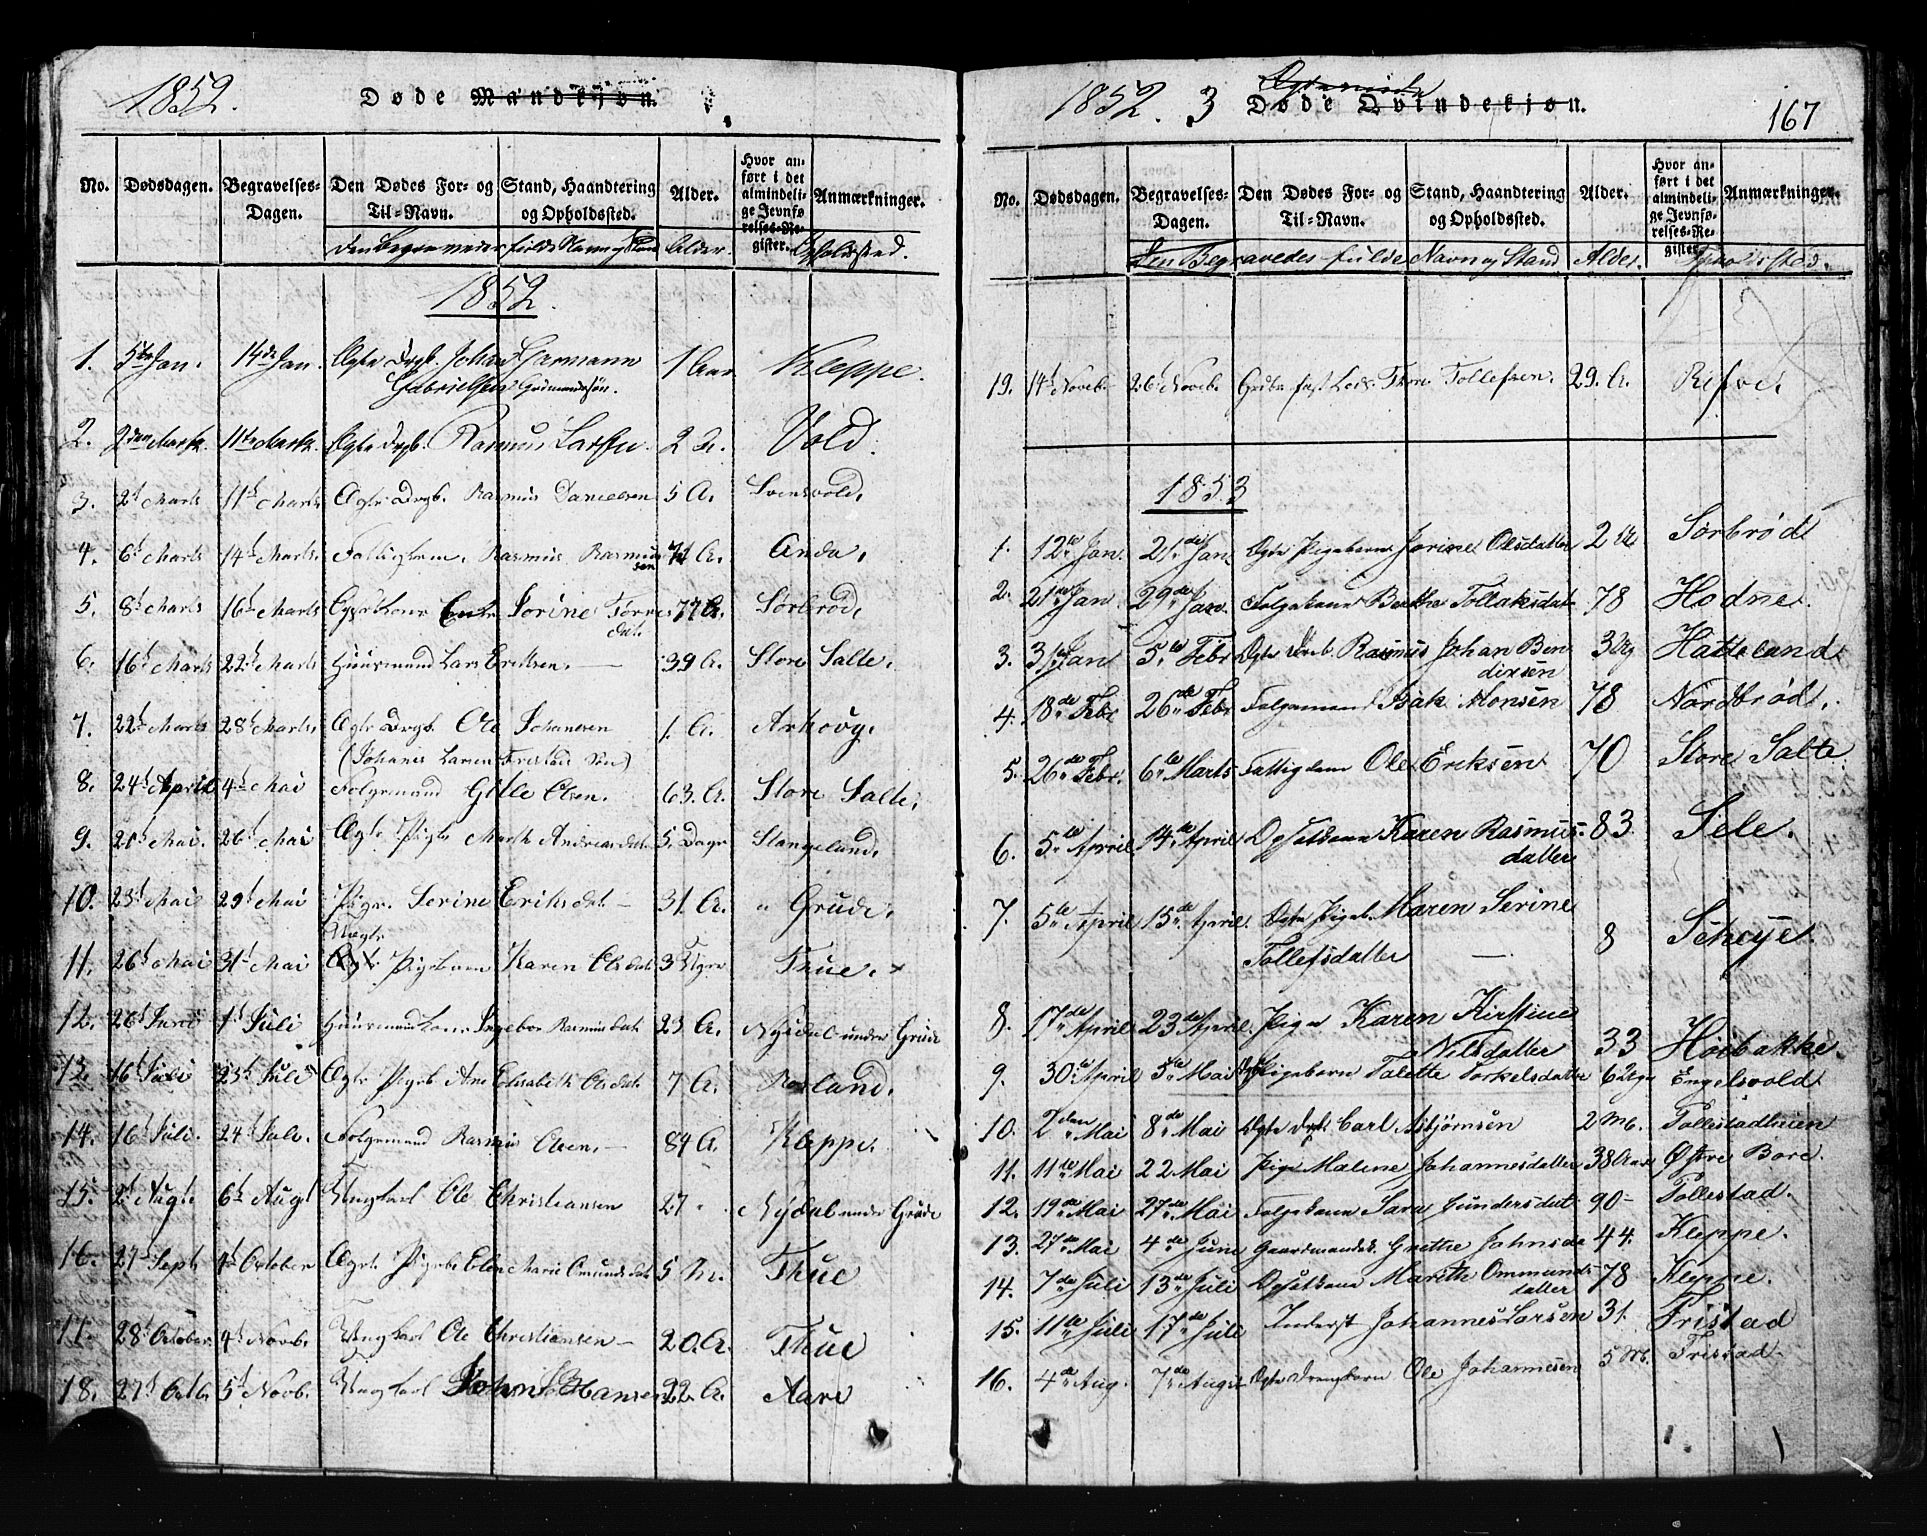 1852. Døde Mandkjøn.
No. Dødsdagen. Begravelses-Dagen. Den Dødes For- og Til-Navn. Stand, Haandtering og Opholdssted. Alder. Hvor anført i det almindelige Jevnførelses-Register. Anmærkninger.
fulde Navn og Stand Alder Opholdssted.
1852.
1. 5te Jan. 14de Jan. Ægte Drgb. Johan Garmann 1 Aar. Kleppe.
Gabrielsen
2. 2den Marts. 11te Marts. Ægte Drgb. Rasmus Larsen. 2 M. Vold.
3. 2d Marts 11te Marts. Ægte Drgb. Rasmus Danielsen 5 A. Svensvold.
4. 6t Marts 14t Marts. Rasmus Rasmussen A. Anda.
5. 8t Marts 16t Marts Enke Sorine 77 A. Sørbrød.
6. 16t Marts 22t Marts Huusmand Lars Eriksen. — 39 A. Store Salte.
7. 22t Marts 28t Marts. Ægte Drgb. Ole Johansen 1. A.
8. 24t April 4t Mai Folgemand Gitle Olsen. 63. A. Store Salte.
9. 20t Mai. 26t Mai Ægte Pigb. Andreasdat. 5. Dage Stangeland.
10. 23t Mai 29t Mai Pige. Serine Eriksdat — 31. A. Grude.
Uægte
11. 26t Mai 31t Mai Pigebarn Karen Olsdat 3 Uger Thue. x
12. 26t Juni 1t Juli Huusmandkone Ingebor Rasmusdat. 23 A. Nydal under Grude
13. 16t Juli 23t Juli Ægte Pigb. Ane Elisabeth Olsdat 7 A. Rosland.
14. 16t Juli. 24t Juli. Folgemand Rasmus Olsen. — 84 A. Kleppe.
15. 2t Augt 6t Augt Ungkarl Ole Christiansen 27 " Nydal under Grude
16. 27t Septb 4t October Ægte Pigeb. Elen Marie Omundsdat 5 M. Thue
17. 28t October. 4t Novbr. Ungkarl Ole Christiansen — 20. A. Thue
18. 27t Octbr 5t Novb. Ungkarl John Hansen 22. A. Aare
1852. 3 Døde Qvindekjøn. 167
No. Dødsdagen. Begravelses-Dagen. Den Dødes For- og Til-Navn. Stand, Haandtering og Opholdssted. Alder. Hvor anført i det almindelige Jevnførelses-Register. Anmærkninger.
Den Begravedes fulde Navn og Stand Alder.
19. 14t Novebr 26t Novebr. Tollefsen. 29. A. Refve.
1853
1. 12te Jan. 21de Jan. Ægte Pigebarn Jorine Olesdatter 2 Sørbrød
2. 21de Jan 29de Jan. Folgekone Berthe Tollaksdat 78 Hodne.
3. 31te Jan 5te Febr Ægte Dreb. Rasmus Johan Ben 3 Ug Hatteland
dixsen
4. 18de Febr 26de Febr Folgemand Isak Monsen 78 Nordbrød.
5. 26de Febr. 6te Marts Fattiglem Ole Eriksen 70 Store Salte.
6. 5te April 14de April Karen Rasmus- 83 Sele.
datter
7. 5te April 15de April. Ægte Pigeb. Maren Serine
Tollefsdatter — 8 Scheye.
8. 17de April 23de April. Pige Karen Kirstine
Nilsdatter 33 Høibakke.
9. 30te April 5te Mai Pigebarn Talette Torkelsdatter 6 Uger Engelsvold
10. 2den Mai 8de Mai Ægte Carl Asbjørnsen 2 M. Tollestad
11. 11te Mai 22 Mai Pige Malene Johannesdatter 38 Aar Østre Bore.
12. 19de Mai 27de Mai Folgekone Sara Gundersdat 90 — Tollestad.
13. 27de Mai 4de Juni Gaardmandsk. Grethe Johnsda 44. Kleppe.
14. 7de Juli 13de Juli Marithe Ommunds- 78 Kleppe.
datter
15. 11te Juli 17de Juli Inderst Johannes Larsen 31. Fristad
16. 4de Aug. 7de August Ægte Drengebarn Ole Johannesen 5 M. Fristad.